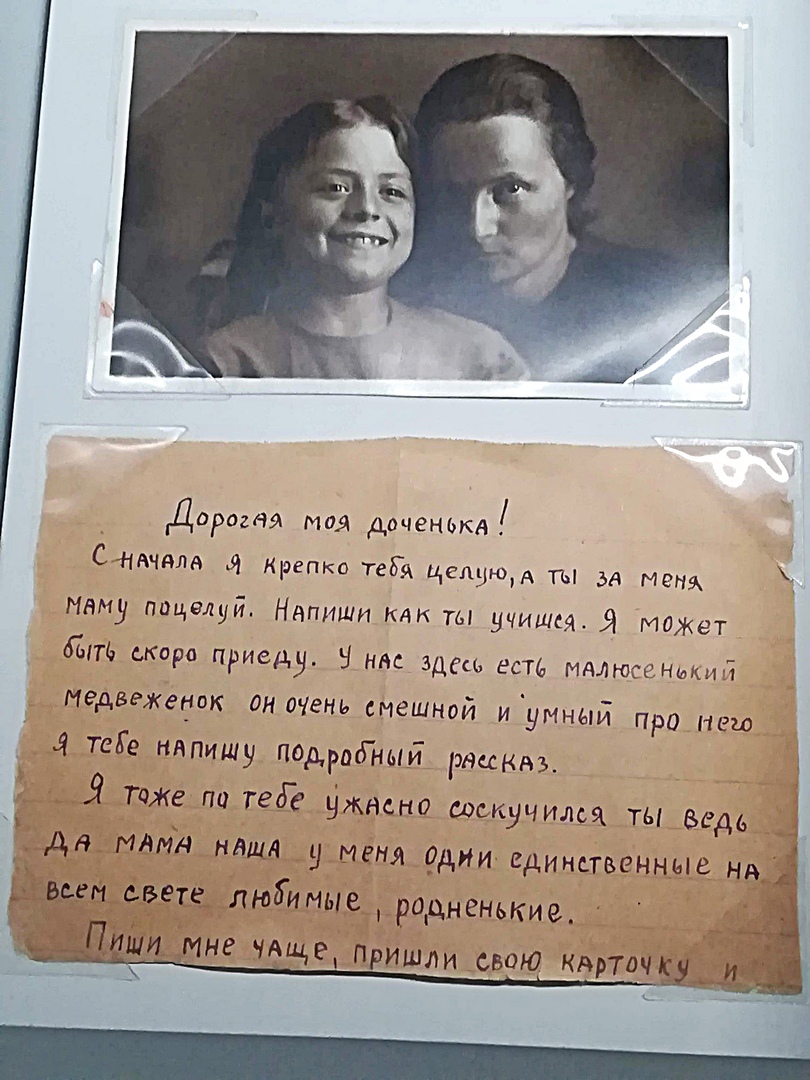 Дорогая моя доченька!
Сначала я крепко тебя целую, а ты за меня
маму поцелуй. Напиши как ты учишся. Я может
быть скоро приеду. У нас здесь есть малюсенький
медвеженок он очень смешной и умный про него
я тебе напишу подробный рассказ.
Я тоже по тебе ужасно соскучился ты ведь
да мама наша у меня одни единственные на
всем свете любимые, родненькие.
Пиши мне чаще, пришли свою карточку и